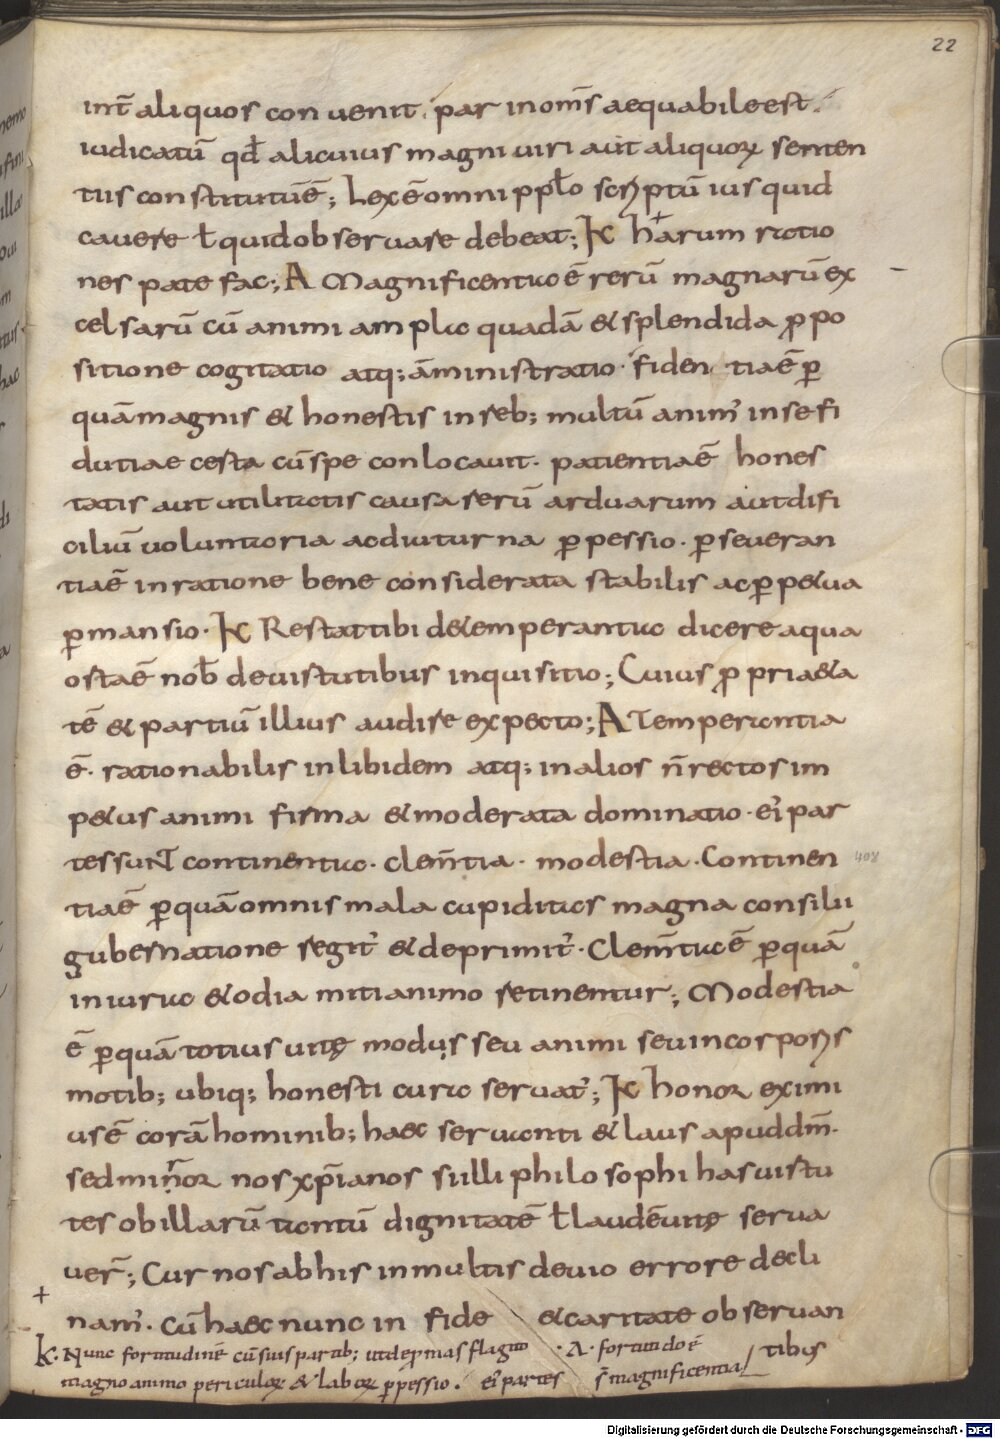 22
int̄ aliquos convenit. par in om̄s aequabile est.
iudicatū qđ alicuius magni viri aut aliquoꝝ senten
tiis constitutūē; Lex ē omni pplo scriptū ius quid
cavere ł quid observare debeat; K harum ratio
nes patefac; A Magnificentia ē rerū magnarū ex
celsarū cū animi ampla quadā & splendida ꝓpo
sitione cogitatio atq; aministratio. fiden tiaē ꝑ
quā magnis & honestis in reb; multū anim᾽ in se fi
dutiae certa cū spe conlocavit. patientiaē hones
tatis aut utilitatis causa rerū arduarum aut difi
ciliū voluntaria ac diuturna ꝑpessio. ꝑseveran
tiaē in ratione bene considerata stabilis ac ꝑp&ua
ꝑmansio. K Restat tibi de temperantia dicere a qua
osta ē nob̄ de virtutibus inquisitio; Cuius ꝓpria &a
tē & partiū illius audire expecto; A Temperantia
ē. rationabilis in libidem atq; in alios n̄ rectos im
p&us animi firma & moderata dominatio. ei᾽ par
tes sunt continentia. clem̄tia. modestia. Continen
408
tiaē ꝑ quā omnis mala cupiditas magna consilii
gubernatione regit᾽ & deprimit᾽. Clem̄tia ē ꝑ quā
iniuria & odia miti animo retinentur; Modestia
ē ꝑ quā totius vitę modus seu animi seu in corporis
motib; ubiq; honesti cura servat᾽; K honor eximi
us ē corā hominib; haec servanti & laus apud dm̄.
sed miror nos xp̄ianos si illi philosophi has virtu
tes ob illarū tantū dignitatē ł laudē vitę serva
ver̄; Cur nos ab his in multis devio errore decli
nam᾽. cū haec nunc in fide & caritate observan
tibus
K. Nunc fortitudinē cū suis partib; ut depromas flagito. A. fortitudo ē
magno animo periculoꝝ & laboꝝ ꝑpessio. ei᾽ partes s̄ magnificentia
Digitalisierung gefördert durch die Deutsche Forschungsgemeinschaft - DFG